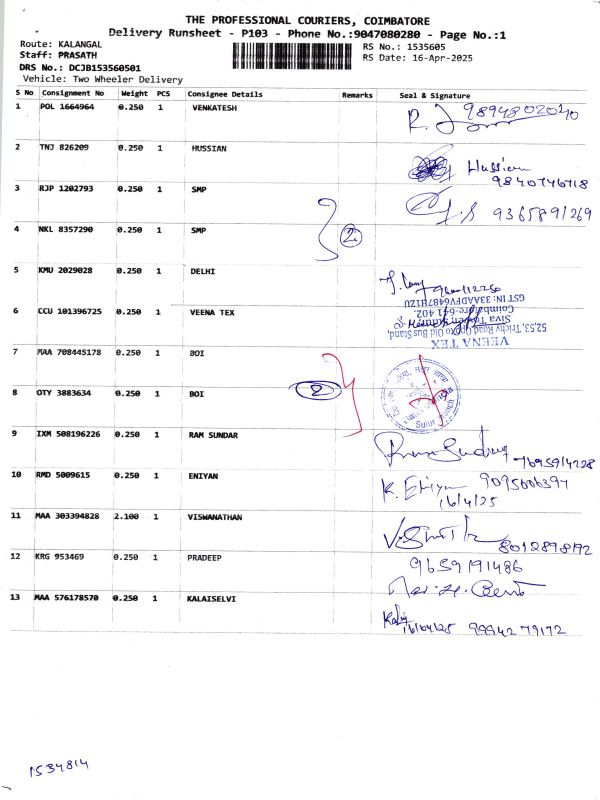 THE PROFESSIONAL COURIERS, COIMBATORE
Delivery Runsheet - P103 - Phone No.:9047080280 - Page No.:1
Route: KALANGAL
RS No.: 1535605
Staff: PRASATH
RS Date: 16-Apr-2025
DRS No.: DCJB153560501
Vehicle: Two Wheeler Delivery
S No Consignment No Weight PCS Consignee Details Remarks Seal & Signature
1 POL 1664964 0.250 1 VENKATESH 9894802040
2 TNJ 826209 0.250 1 HUSSIAN Hussian
9840746718
3 RJP 1202793 0.250 1 SMP 9365891269
4 NKL 8357290 0.250 1 SMP 2
5 KMU 2029028 0.250 1 DELHI
6 CCU 101396725 0.250 1 VEENA TEX
VEENA TEX
52,53, Trichy Road, Opp to Old Bus Stand,
Coimbatore-641 402.
GSTIN: 33AADFV6487H1ZU
7 MAA 708445178 0.250 1 BOI
8 OTY 3883634 0.250 1 BOI 2
Sulur Branch
9 IXM 508196226 0.250 1 RAM SUNDAR Ram Sundar
7695914228
10 RMD 5009615 0.250 1 ENIYAN K. Eniyan 9095606394
16/4/25
11 MAA 303394828 2.100 1 VISWANATHAN
8012898192
12 KRG 953469 0.250 1 PRADEEP 9659191486
13 MAA 576178570 0.250 1 KALAISELVI
16/04/25 99942 79172
1534814